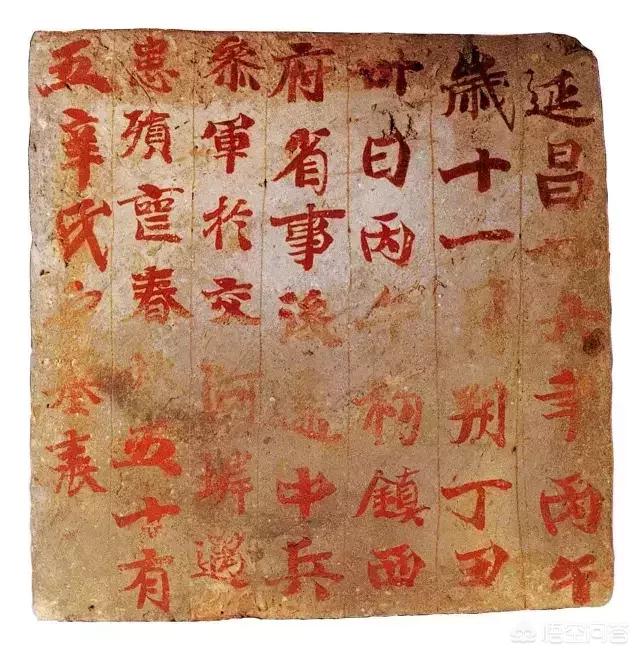 延昌廿六年丙午
歲十一月朔丁丑
卅日丙午初鎮西
府省事後遷中兵
參軍於交河遇
患殞喪春秋五十有
五辛氏之墓表
悟空问答